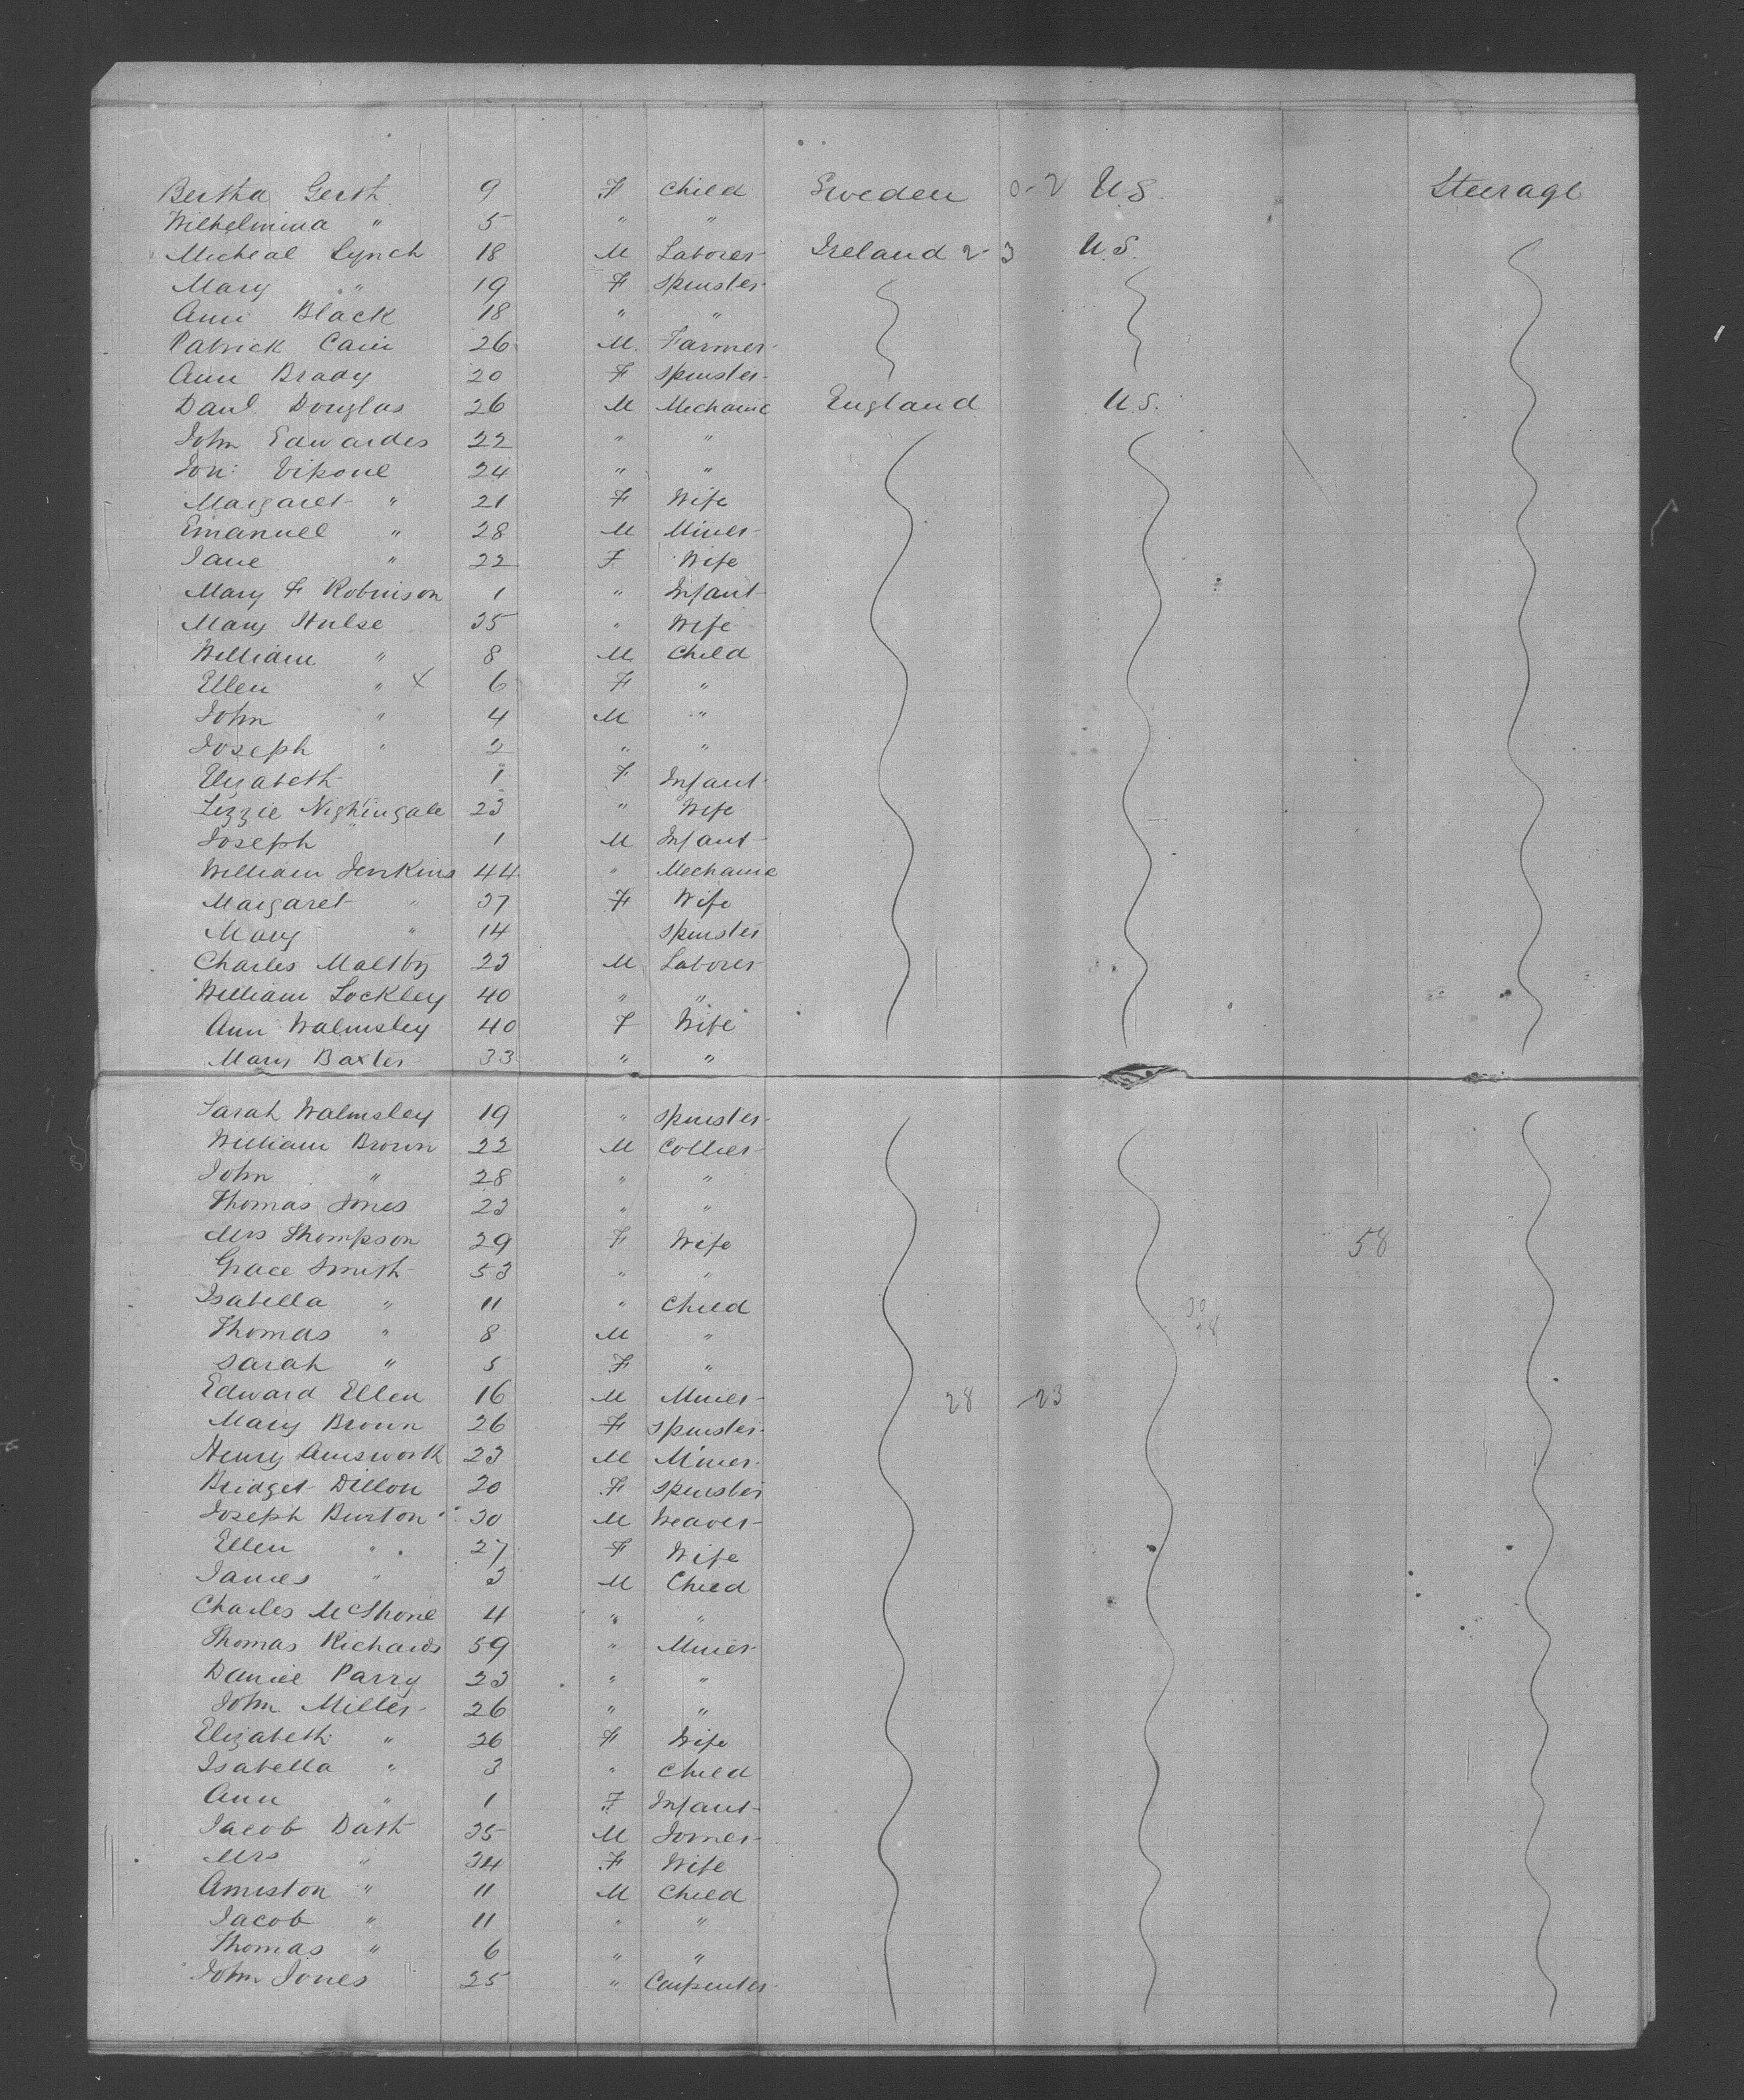 Bertha Gerth 9 F Child Sweden 0-2 U.S. Steerage
Wilhelmina " 5 " "
Micheal Lynch 18 M Laborer Ireland 2-3 U.S.
Mary " 19 F Spinster
Ann Black 18 " "
Patrick Cain 26 M. Farmer
Ann Brady 20 F Spinster
Danl. Douglas 26 M Mechanic England U.S.
John Edwardes 22 " "
Jon: Vipone 24 " "
Margaret " 21 F Wife
Emanuel " 28 M Miner
Jane " 22 F Wife
Mary F Robinson 1 " Infant
Mary Hulse 35 " Wife
William " 8 M Child
Ellen " x 6 F "
John " 4 M "
Joseph " 2 " "
Elizabeth 1 F Infant
Lizzie Nightingale 23 " Wife
Joseph " 1 M Infant
William Jenkins 44 " Mechanic
Margaret " 37 F Wife
Mary " 14 Spinster
Charles Maltby 23 M Laborer
William Lockley 40 " "
Ann Walmsley 40 F Wife
Mary Baxter 33 " "
Sarah Walmsley 19 " Spinster
William Brown 22 M Collier
John " 28 " "
Thomas Jones 23 " "
Mrs Thompson 29 F Wife 58
Grace Smith 53 " "
Isabella " 11 " Child 30
Thomas " 8 M " 28
Sarah " 5 F "
Edward Ellen 16 M Miner 28 23
Mary Brown 26 F Spinster
Henry Ainsworth 23 M Miner
Bridget Dillon 20 F Spinster
Joseph Burton 30 M Weaver
Ellen " 27 F Wife
James " 3 M Child
Charles McShone 4 " "
Thomas Richards 59 " Miner
Daniel Parry 23 " "
John Miller 26 " "
Elizabeth " 26 F Wife
Isabella " 3 " Child
Ann " 1 F Infant
Jacob Dash 35 M Joiner
Mrs " 34 F Wife
Amiston " 11 M Child
Jacob " 11 " "
Thomas " 6 " "
John Jones 25 " Carpenter